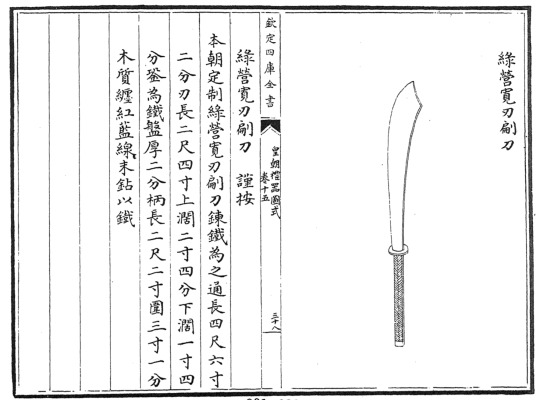 綠營寛刃𠝹刀
欽定四庫全書
皇朝禮器圖式
卷十五
三十八
綠營寛刃𠝹刀 謹按
本朝定制綠營寛刃𠝹刀鍊鐵為之通長四尺六寸
二分刃長二尺四寸上濶二寸四分下濶一寸四
分銎為鐵盤厚二分柄長二尺二寸圍三寸一分
木質纏紅藍線末鉆以鐵